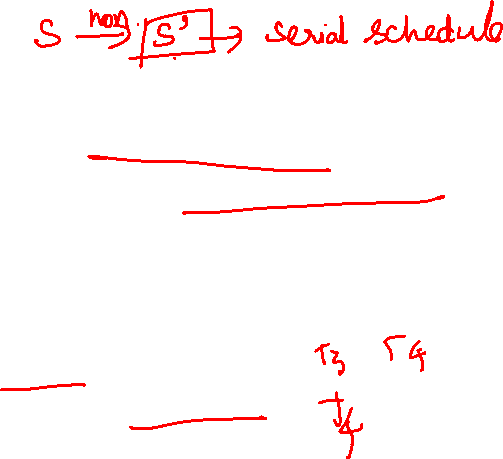 S → non S' → serial schedule
T3 T4